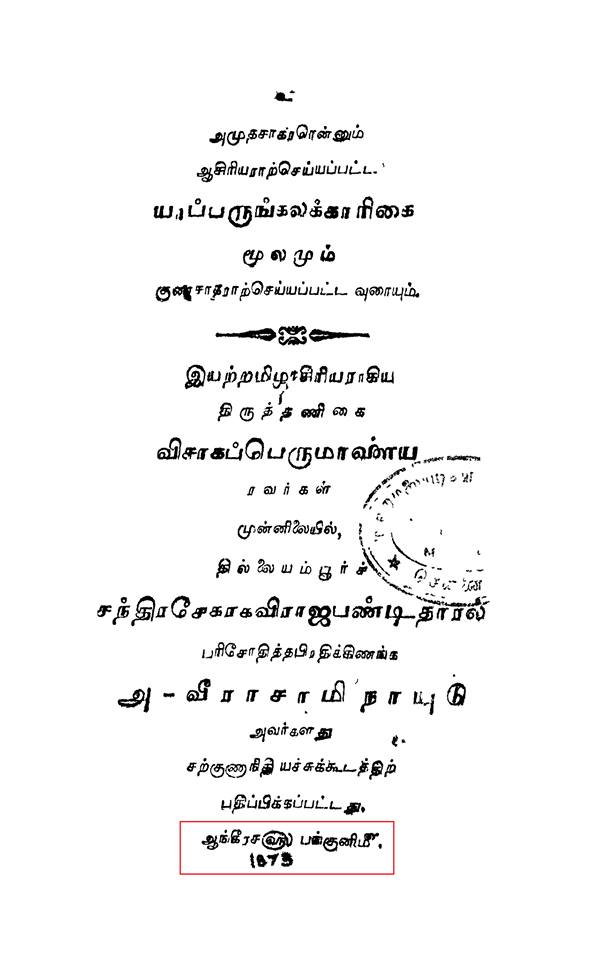 உ
அமுதசாகரரென்னும்
ஆசிரியராற்செய்யப்பட்ட
யாப்பருங்கலக்காரிகை
மூலமும்
குணசாகரராற்செய்யப்பட்ட வுரையும்.
இயற்றமிழாசிரியராகிய
திருத்தணிகை
விசாகப்பெருமாளைய
ரவர்கள்
முன்னிலையில்,
தில்லையம்பூர்ச்
சந்திரசேகரகவிராஜபண்டிதாரல்
பரிசோதித்தபிரதிக்கிணங்க
அ - வீராசாமிநாயுடு
அவர்களது
சற்குணநிதியச்சுக்கூடத்திற்
பதிப்பிக்கப்பட்டது.
ஆங்கீரச௵ பங்குனி௴.
1873